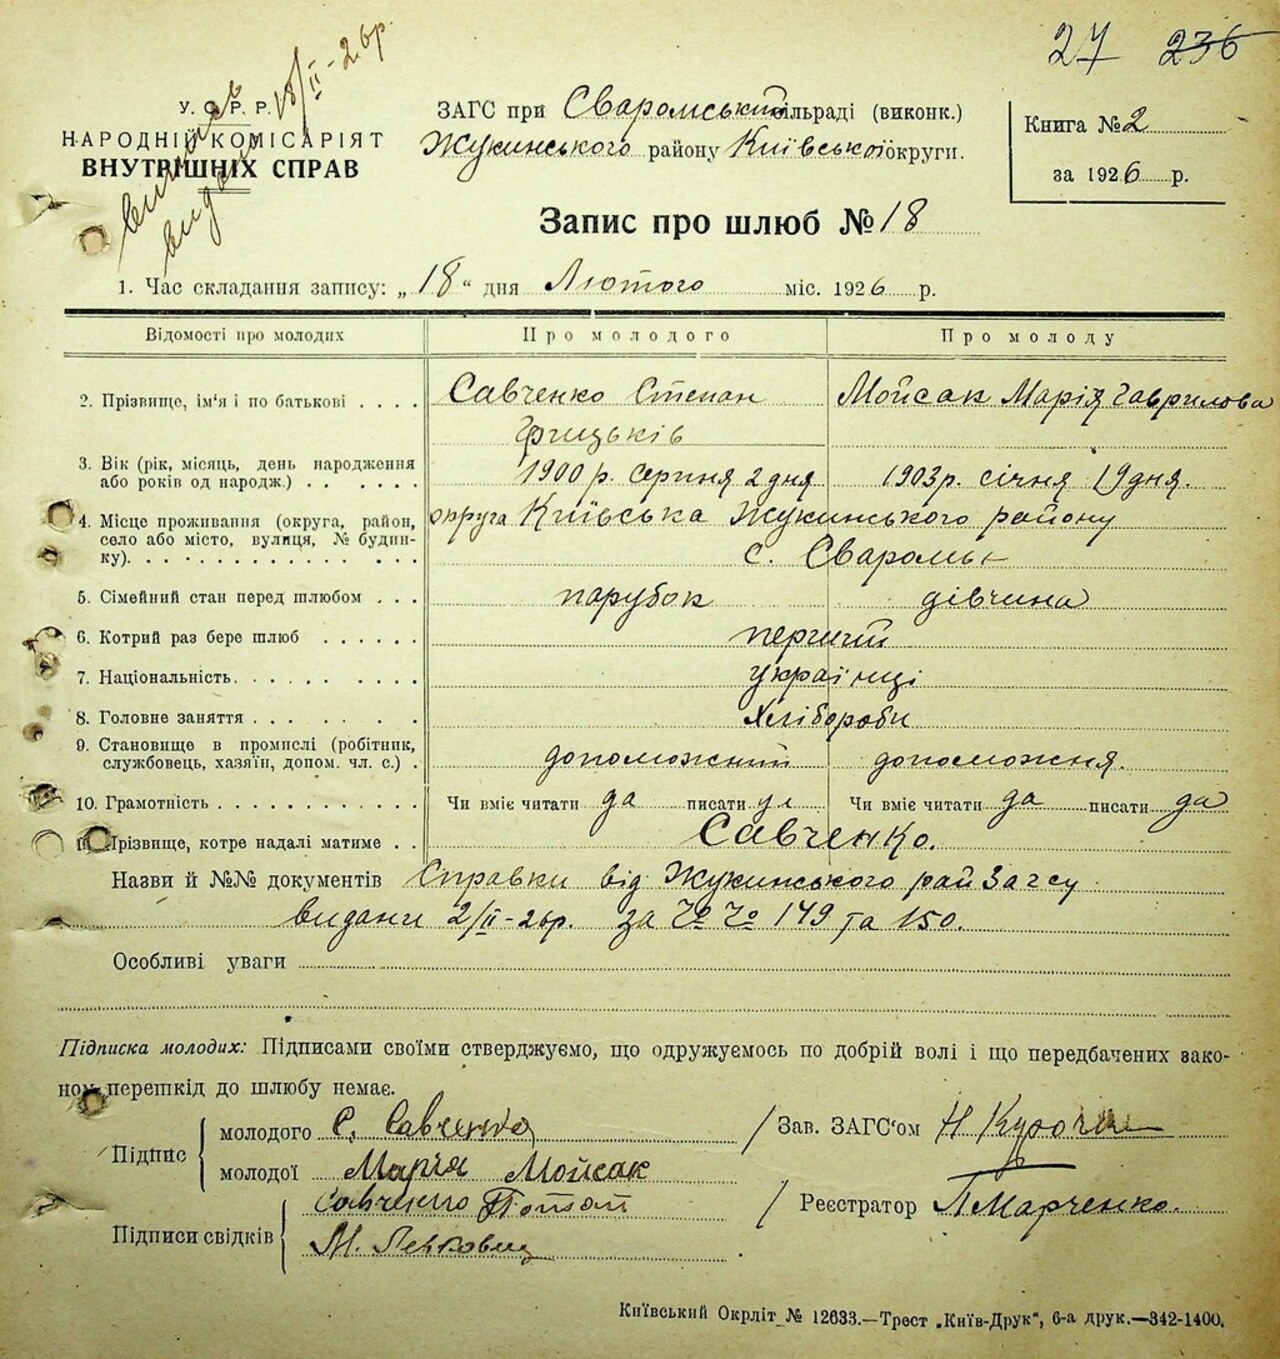 27 236
18/II-26р.
У. С. Р. Р.
НАРОДНІЙ КОМІСАРІЯТ
ВНУТРІШНІХ СПРАВ
ЗАГС при Сваромський сільраді (виконк.)
Жукинського району Київської округи.
Книга № 2
за 1926 р.
Запис про шлюб № 18
1. Час складання запису: „18“ дня Лютого міс. 1926 р.
Відомості про молодих Про молодого Про молоду
2. Прізвище, ім'я і по батькові . . . . Савченко Степан Мойсак Марія Гаврилова
Грицьків
3. Вік (рік, місяць, день народження або років од народж.) . . . . . . . 1900 р. серпня 2 дня 1903р. січня 19 дня.
4. Місце проживання (округа, район, село або місто, вулиця, № будинку). округа Київська Жукинського району
с. Сваромь
5. Сімейний стан перед шлюбом . . . парубок дівчина
6. Котрий раз бере шлюб . . . . . . перший
7. Національність. . . . . . . . . українці
8. Головне заняття . . . . . . . Хлібороби
9. Становище в промислі (робітник, службовець, хазяїн, допом. чл. с.) . допоможний допоможня.
10. Грамотність . . . . . . . . . . . Чи вміє читати да писати Чи вміє читати да писати да
11. Прізвище, котре надалі матиме . . Савченко.
Назви й №№ документів Справки від Жукинського рай Загсу
видани 2/II-26р. за №№ 149 та 150.
Особливі уваги
Підписка молодих: Підписами своїми стверджуємо, що одружуємось по добрій волі і що передбачених зако-
ном перешкід до шлюбу немає.
Підпис молодого С. Савченко / Зав. ЗАГС'ом
молодої Марія Мойсак
Підписи свідків Савченко / Реєстратор П Марченко.
М.
Київський Окрліт № 12633.—Трест „Київ-Друк“, 6-а друк.—342-1400.